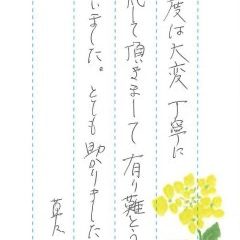 度は大変丁寧に
して頂きまして有り難とう
いました。とても助かりました
草々